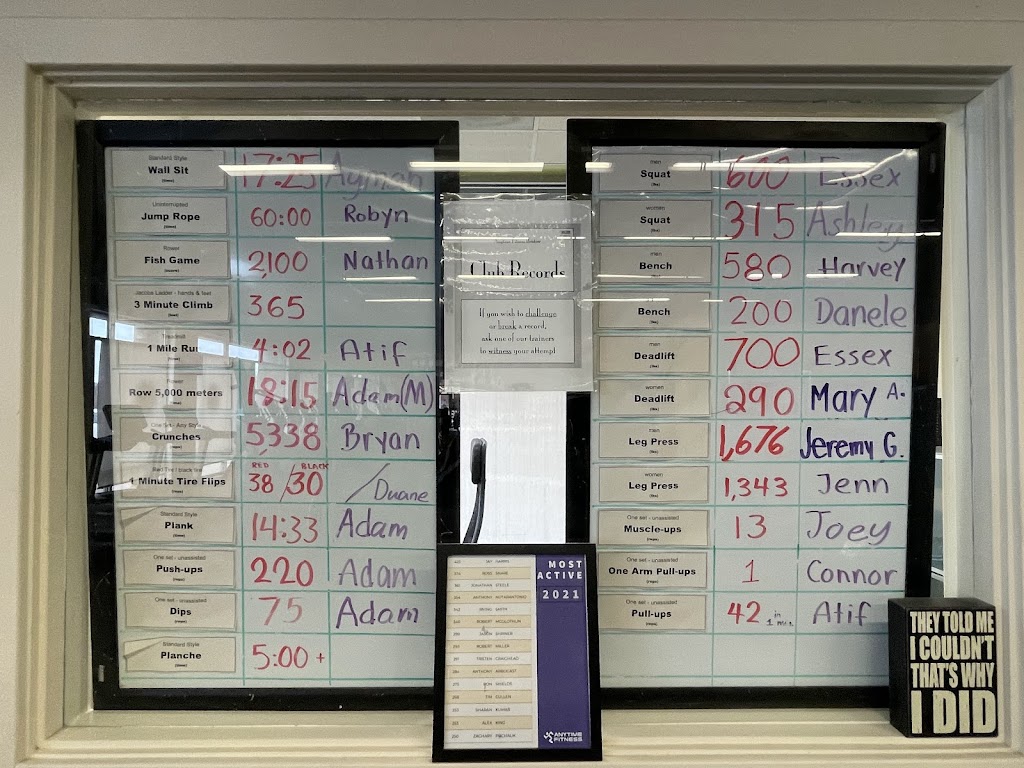 Standard Style
Wall Sit
(time)
17:25 Ayman
Unassisted
Jump Rope
(time)
60:00 Robyn
Rower
Fish Game
(score)
2,100 Nathan
Jacobs Ladder - hands & feet
3 Minute Climb
(feet)
365
Treadmill
1 Mile Run
4:02 Atif
Rower
Row 5,000 meters
(time)
18:15 Adam(M)
One Set - Any Style
Crunches
(reps)
5,338 Bryan
Red Tire / black tire
1 Minute Tire Flips
RED BLACK
38 / 30 / Duane
Standard Style
Plank
(time)
14:33 Adam
One set - unassisted
Push-ups
(reps)
220 Adam
One set - unassisted
Dips
(reps)
75 Adam
Standard Style
Planche
(time)
5:00 +
Club Records
If you wish to challenge
or break a record,
ask one of our trainers
to witness your attempt
men
Squat
(lbs)
600 Essex
women
Squat
(lbs)
315 Ashley
men
Bench
(lbs)
580 Harvey
Bench
(lbs)
200 Danele
men
Deadlift
(lbs)
700 Essex
women
Deadlift
(lbs)
290 Mary A.
men
Leg Press
(lbs)
1,676 Jeremy G.
women
Leg Press
(lbs)
1,343 Jenn
One set - unassisted
Muscle-ups
(reps)
13 Joey
One set - unassisted
One Arm Pull-ups
(reps)
1 Connor
One set - unassisted
Pull-ups
(reps)
42 in 1 min. Atif
MOST
ACTIVE
2021
JONATHAN STEELE
SMITH
ROBERT
JASON SUMNER
ROBERT MILLER
ANTHONY
SHIELDS
TIM CULLEN
ALEX KING
ZACHARY
ANYTIME
FITNESS
THEY TOLD ME
I COULDN'T
THAT'S WHY
I DID